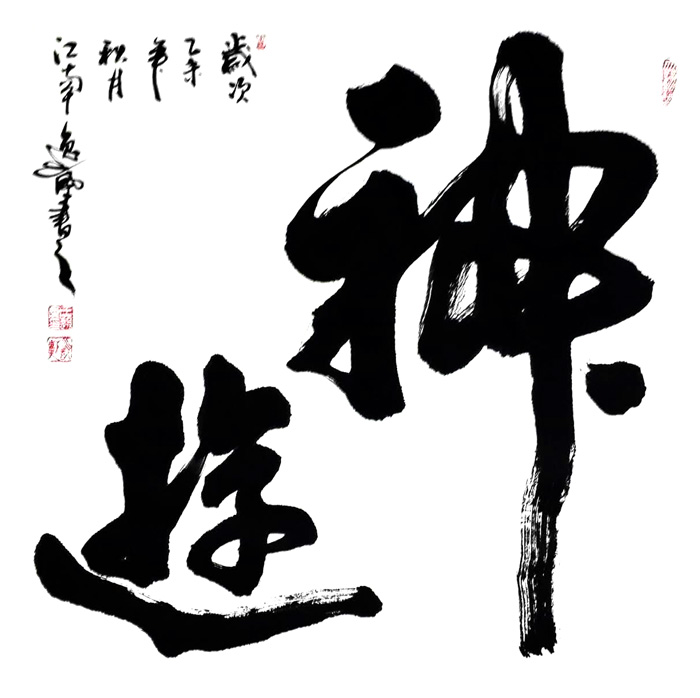 神
遊
歲次
乙未
年
秋月
江南逸書